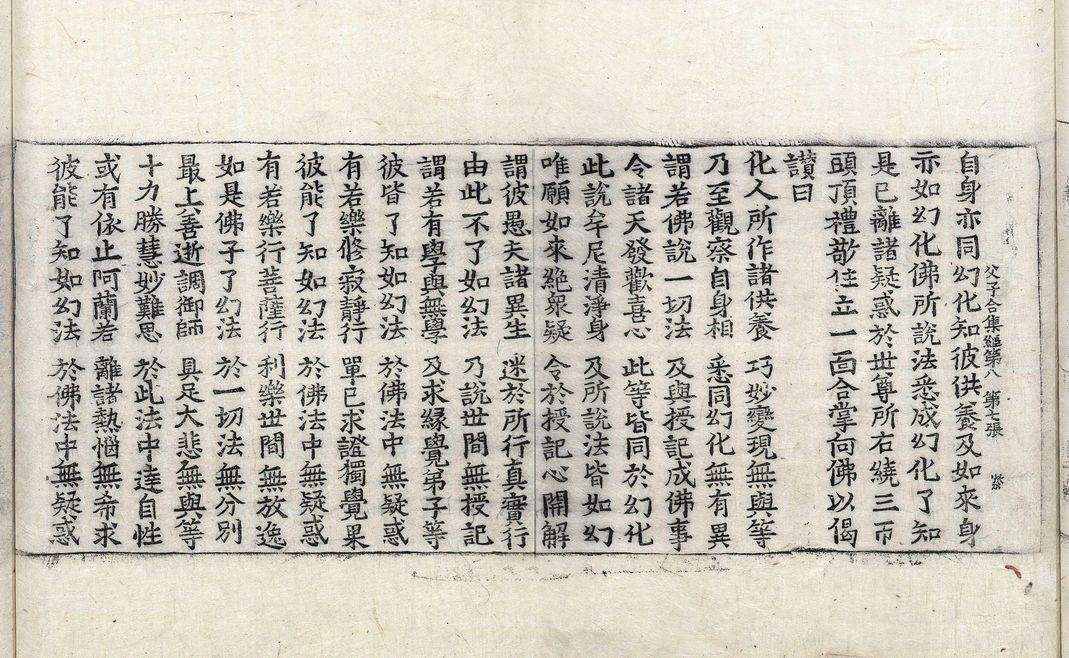 父子合集經第八 第七張 祭
自身亦同幻化知彼供養及如來身
亦如幻化佛所說法悉成幻化了知
是已離諸疑惑於世尊所右繞三帀
頭頂禮敬住立一面合掌向佛以偈
讚曰
化人所作諸供養 巧妙變現無與等
乃至觀察自身相 悉同幻化無有異
謂若佛說一切法 及與授記成佛事
令諸天發歡喜心 此等皆同於幻化
此說牟尼清淨身 及所說法皆如幻
唯願如來絶衆疑 令於授記心開解
謂彼愚夫諸異生 迷於所行真實行
由此不了如幻法 乃說世間無授記
謂若有學與無學 及求緣覺弟子等
彼皆了知如幻法 於佛法中無疑惑
有若樂修寂靜行 單已求證獨覺果
彼能了知如幻法 於佛法中無疑惑
有若樂行菩薩行 利樂世間無放逸
如是佛子了幻法 於一切法無分別
最上善逝調御師 具足大悲無與等
十力勝慧妙難思 於此法中達自性
或有依止阿蘭若 離諸熱惱無希求
彼能了知如幻法 於佛法中無疑惑